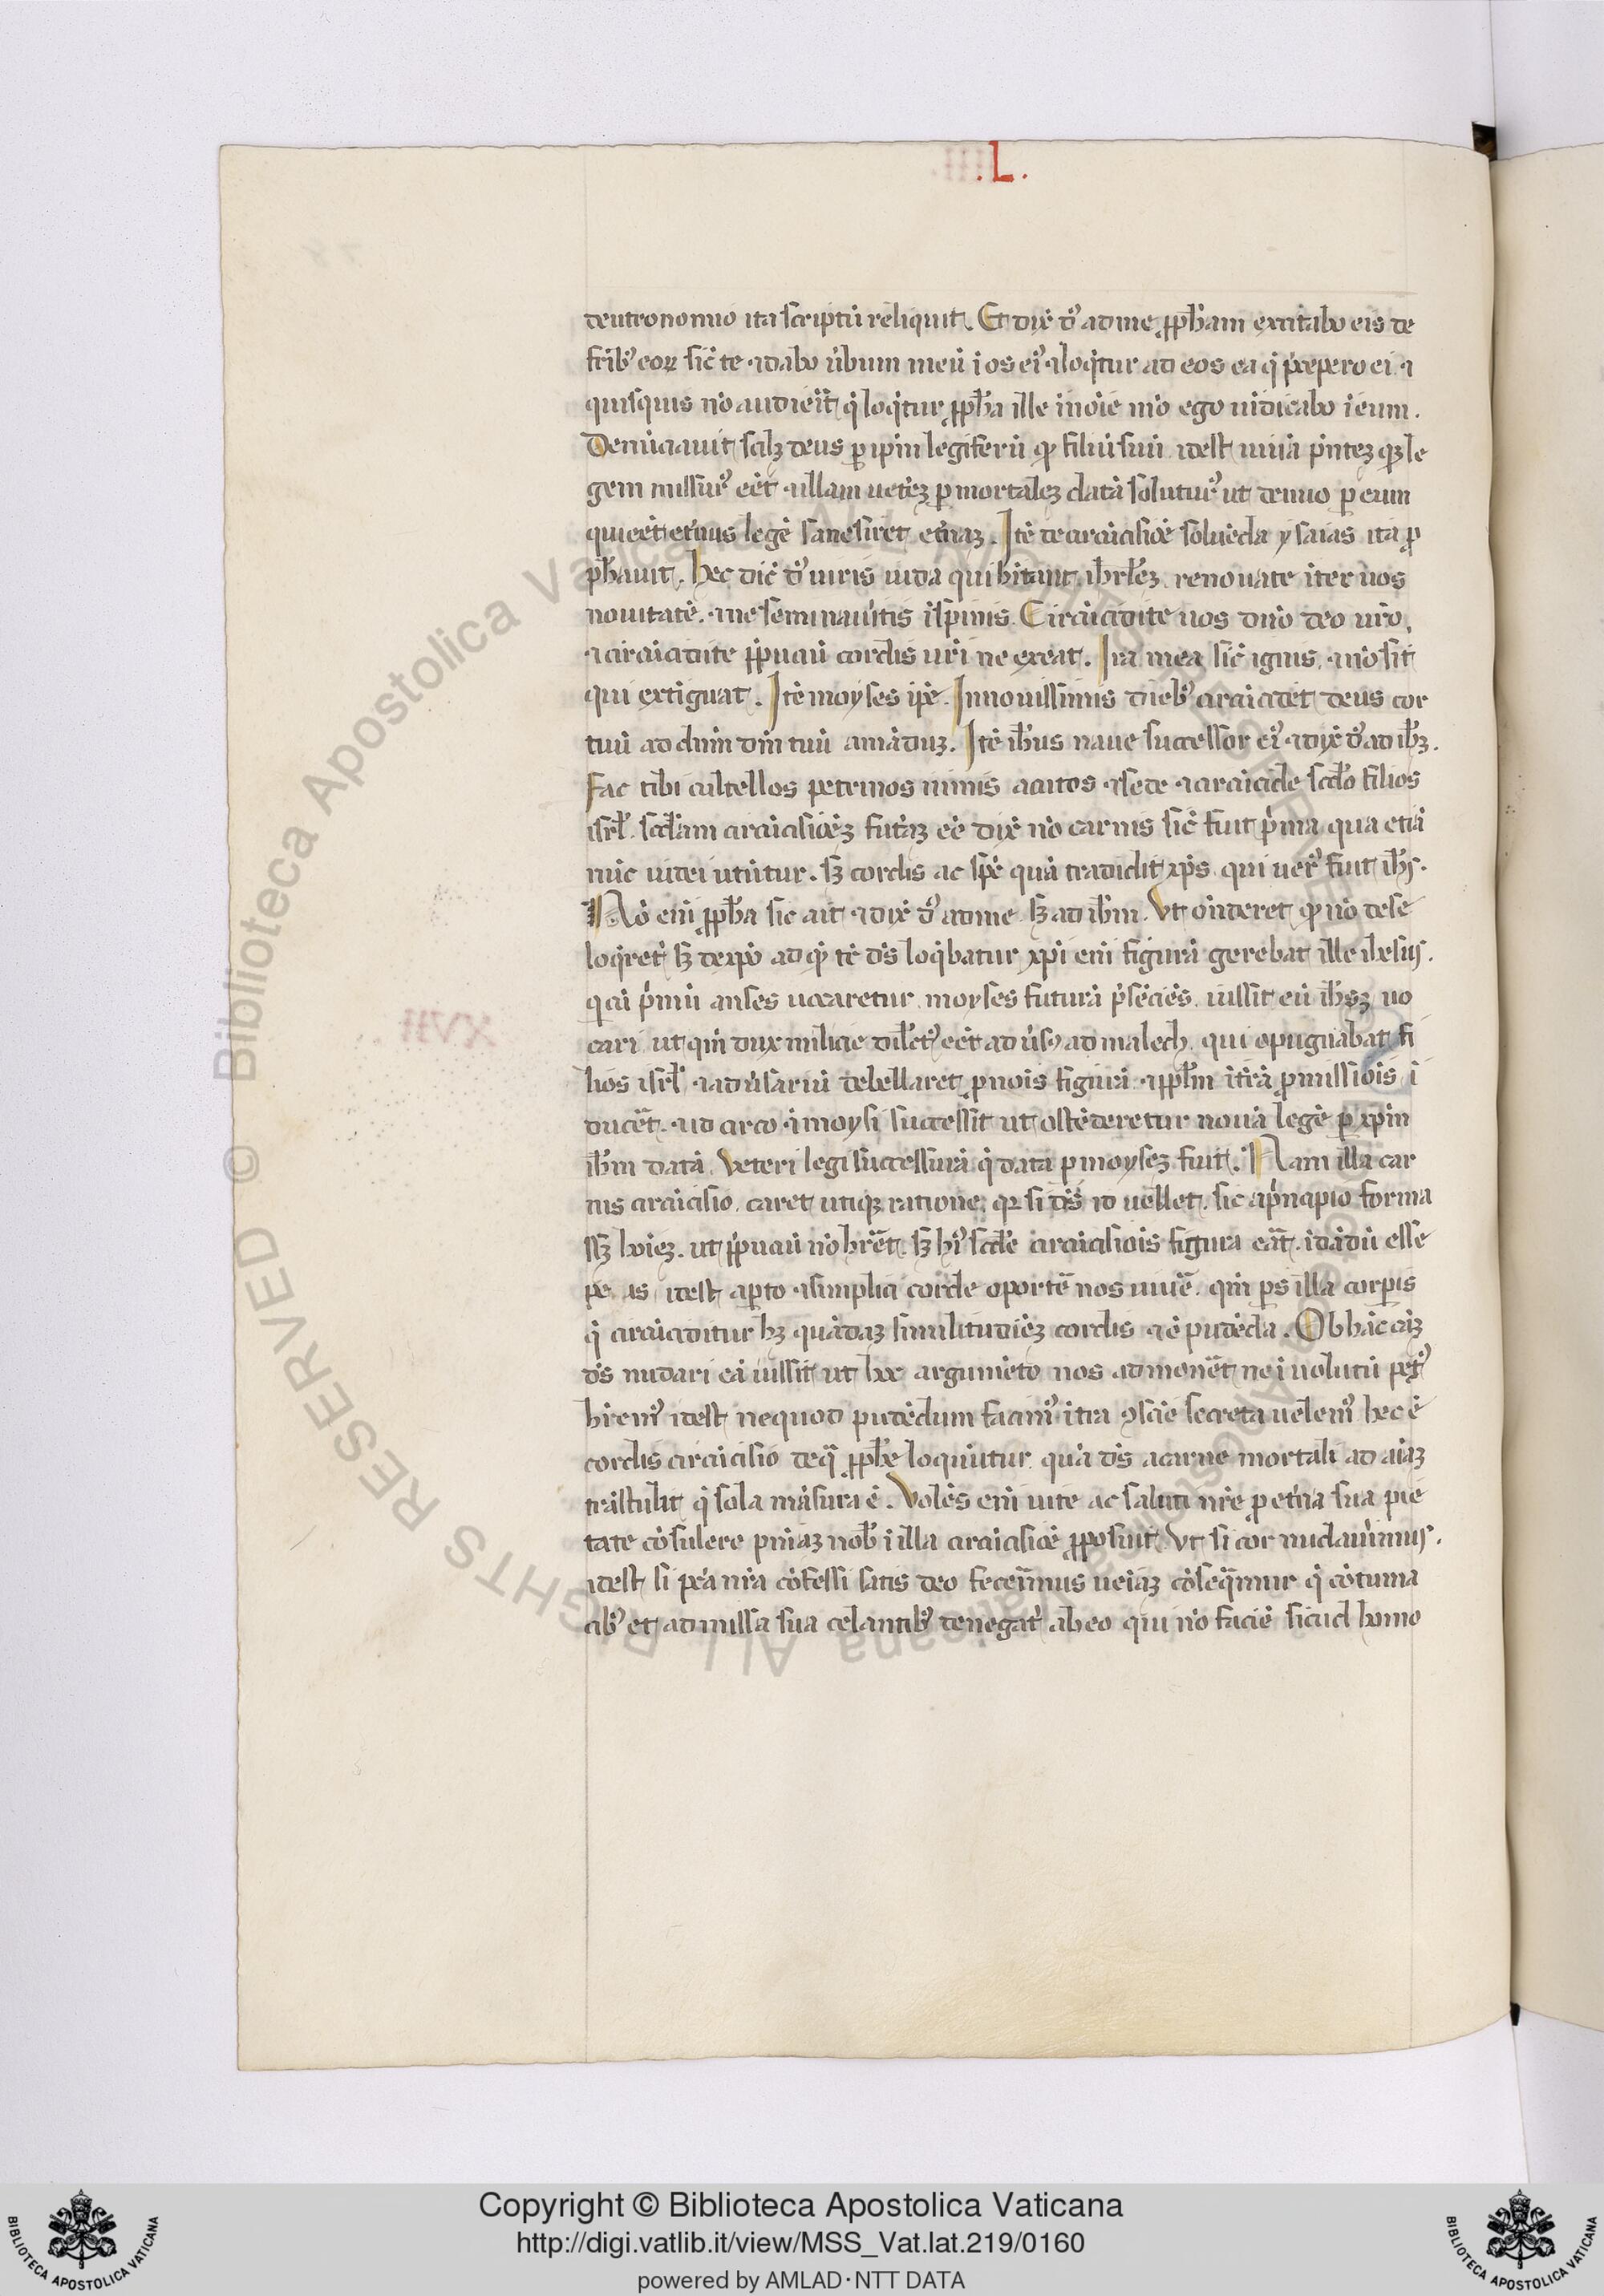 .L.
deutronomio ita scriptũ reliquit. Et dix̃ d̃s ad me p̱ph̃am excitabo eis de
frib̃ eoꝝ sic̃ te ⁊ dabo ũbum meũ ĩ os ei᷒ ⁊ loq̃tur ad eos ea q̃ p̃cepero ei ⁊
quisquis nõ audierĩt q̃ loq̃tur p̱ph̃a ille in oĩe mõ ego uĩdicabo ĩ eum.
Denũciauit scilꝫ deus ꝑ ip̃m legiferũ ꝙ filiũ suũ idest uiuã p̃ntez q̃ le
gem missur᷒ eẽt ⁊ illam uetẽꝫ ꝑ mortalez datã solutur᷒ ut denuo ꝑ eum
qui eẽt et̃nus legẽ sanc̃siret et̃naꝫ. Itẽ de circũcisiõe soluẽda ysaias ita ꝓ
ph̃auit. Hec dic̃ d̃s uiris iuda qui h̃itant ih̃rl̃ez. renouate iter uos
nouitatẽ. ⁊ ne seminauitis ĩ spinis. Circũcidite uos dño deo ur̃o,
⁊ circũcidite p̱puciũ cordis ur̃i ne exeat. Ira mea sic̃ ignis, ⁊ nõ sit
qui extiguat. Itẽ moyses ip̃e. In nouissimis dieb᷒ circũcidet deus cor
tuũ ad dñm dm̃ tuũ amãduꝫ. Itẽ ih̃us naue successor ei᷒ ⁊ dix̃ d̃s ad ih̃ꝫ.
fac tibi cultellos petrinos nimis acutos ⁊ sede ⁊ circũcide scd̃o filios
isrl̃. scd̃am circũcisiõez futãꝫ eẽ dix̃ nõ carnis sic̃ fuit p̃ma qua etiã
nũc iudei utũtur. sꝫ cordis ac sp̃s quã tradidit xp̃s qui uer᷒ fuit ih̃s.
Nõ eni p̱ph̃a sic ait ⁊ dix̃ d̃s ad me sꝫ ad ih̃m. Ut oñderet ꝙ nõ de se
loq̃ret᷒ sꝫ de xp̃o ad quẽ tẽ d̃s loq̃batur xp̃i eni figurã gerebat ille ihesus.
q̃ cũ p̃mũ auses uocaretur. moyses futurã p̃sẽciẽs. iussit eũ ih̃sꝫ uo
cari ut qm̃ dux milicie dil̃ct᷒ eẽt aduers᷒ amalech. qui opugnabat fi
lios isrl̃ ⁊ aduersariũ debellaret ꝑ nois figurã ⁊ pp̃lm ĩ t̃rã ꝓmissiõis ĩ
ducẽt. id circo ⁊ moysi successit ut ostẽderetur nouã legẽ ꝑ xp̃m
ih̃m datã. Veteri legi successurã q̃ data ꝑ moysez fuit. Nam illa car
nis circũcisio. caret utiqꝫ ratione. qꝛ si d̃s id uellet. sic a p̃ncipio forma
ssꝫ hoĩez. ut p̱puciũ nõ hr̃et. sꝫ h᷒ scd̃e circũcisiõis figura erãt.
 idest apto ⁊ simplici corde oportẽ nos uiuẽ. qm̃ ps illa corpis
q̃ circũciditur hꝫ quãdaꝫ similitudiẽꝫ cordis ⁊ ẽ pudẽda. Ob hãc cãꝫ
d̃s nudari eã iussit ut hoc argumẽto nos admonẽt ne ĩ uolutũ pect᷒
h̃rem᷒ idest ne quod pudẽdum facin᷒ ĩtra ꝯsciẽ secreta uelem᷒ hec ẽ
cordis circũcisio de q̃ p̱ph̃e loquũtur quã d̃s a carne mortali ad aĩaꝫ
trãstulit q̃ sola mãsura ẽ. Volẽs eni uite ac saluti nr̃e ꝓ et̃na sua pie
tate cõsulere pniaꝫ nob̃ ĩ illa circũcisiõe p̱posuit. Ut si cor nudauimus.
idest si pc̃a nr̃a cõfessi satis deo fecerĩmus ueniaꝫ cõseq̃mur q̃ cõtuma
cib᷒ et admissa sua celantib᷒ denegat᷒ ab eo qui nõ faciẽ sicud homo
Copyright © Biblioteca Apostolica Vaticana
http://digi.vatlib.it/view/MSS_Vat.lat.219/0160
powered by AMLAD·NTT DATA